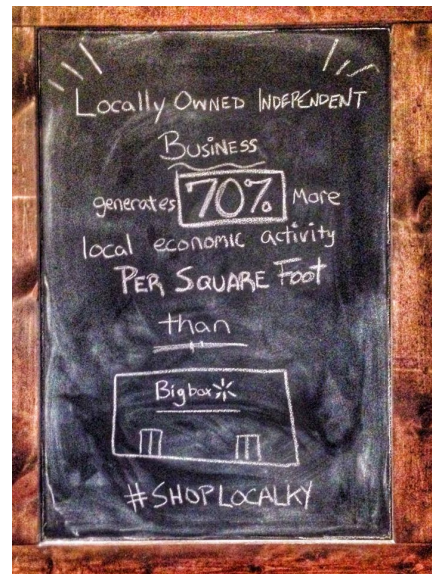 Locally Owned Independent
Business
generates 70% More
local economic activity
Per Square Foot
than
Bigbox
#SHOPLOCALKY